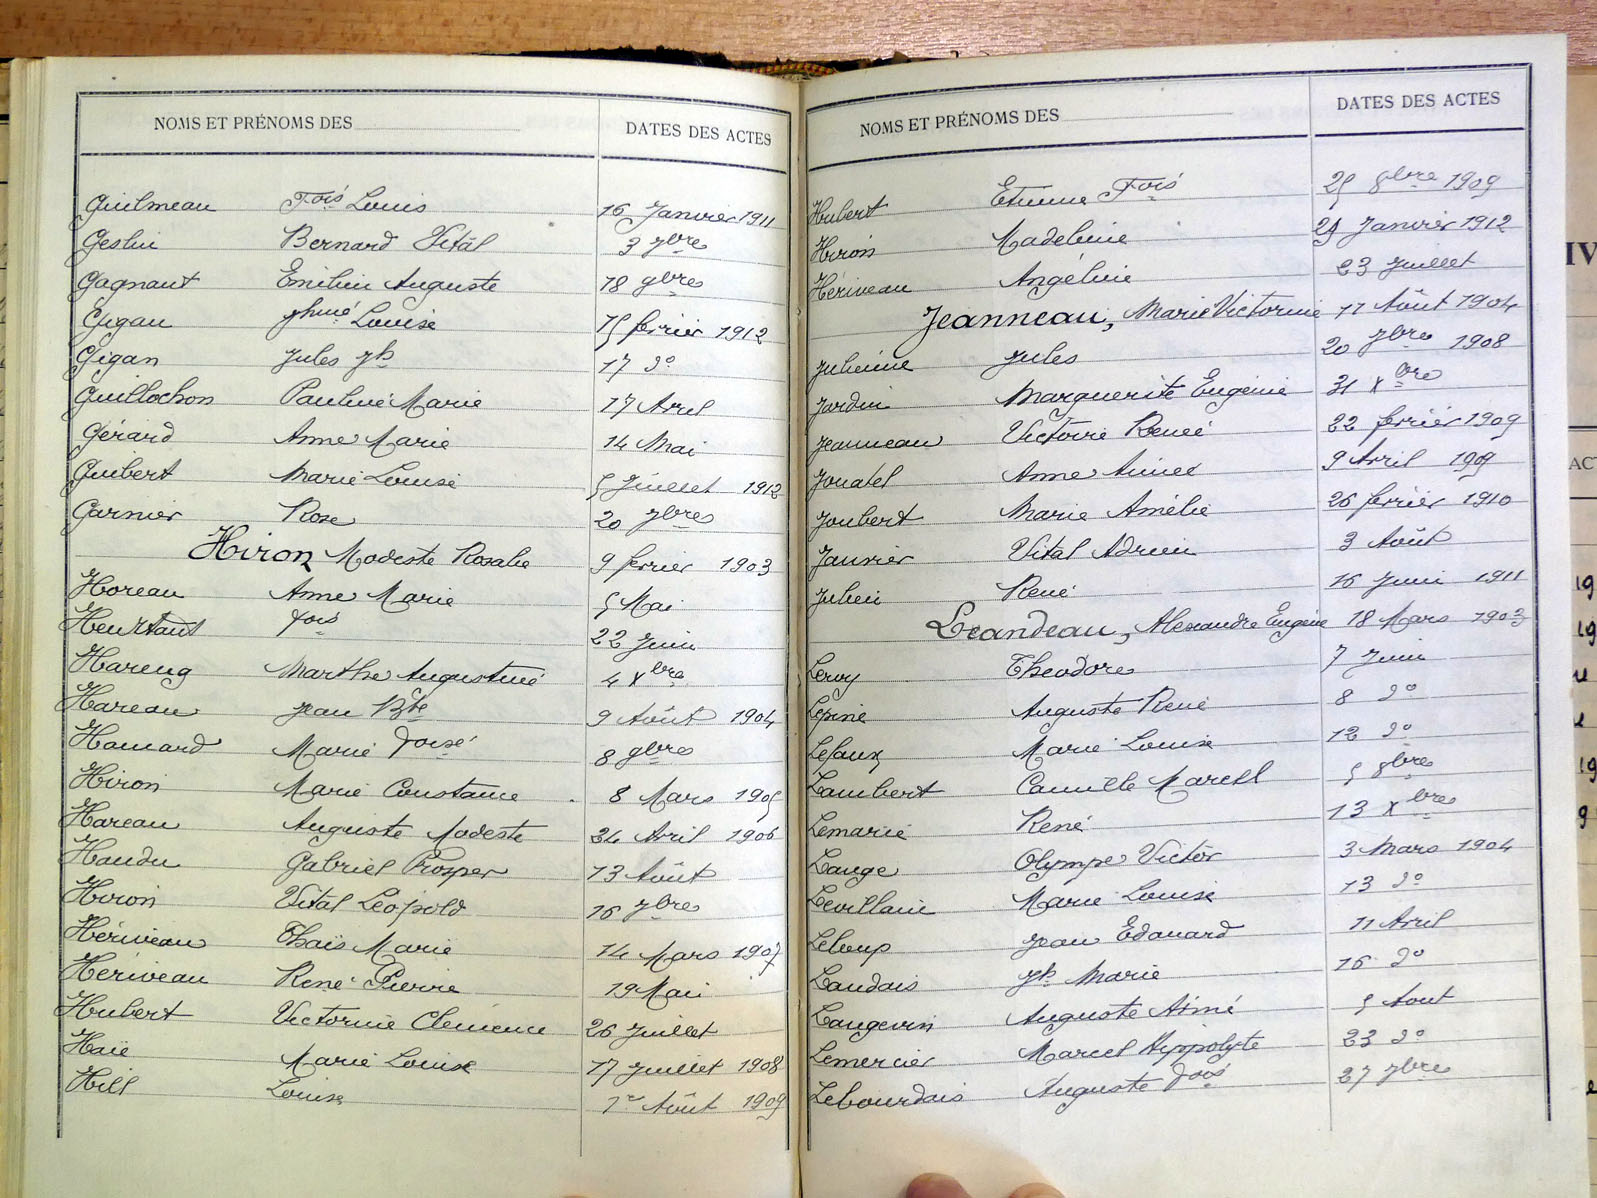 NOMS ET PRÉNOMS DES DATES DES ACTES
Guilmeau Fois Louis 16 Janvier 1911
Geslin Bernard Vital 3 7bres
Gagnant Emilien Auguste 18 9bres
Gigan Louise 15 février 1912
Gigan Jules Jh 17 do
Guillochon Pauline Marie 17 Avril
Gérard Anne Marie 14 Mai
Guibert Marie Louise 5 Juillet 1912
Garnier Rose 20 7bres
Hiron Modeste Rosalie 9 ferrier 1903
Horeau Anne Marie 5 Mai
Heurtaut fois 22 Juin
Hareng Marthe Augustine 4 xbre
Hareau Jean Bte 9 Août 1904
Hamard Marie foise 8 9bres
Hiron Marie Constance 8 Mars 1905
Hareau Auguste Modeste 24 Avril 1906
Haudu Gabriel Prosper 13 Août
Hiron Vital Léopold 16 7bres
Hériveau Thaïs Marie 14 Mars 1907
Hériveau René Pierre 19 Mai
Hubert Victorine Clemence 26 Juillet
Haie Marie Louise 17 Juillet 1908
Hill Louise 1er Août 1909
NOMS ET PRÉNOMS DES DATES DES ACTES
Hubert Etienne Fois 25 8bre 1909
Hiron Madeleine 25 Janvier 1912
Hériveau Angéline 23 Juillet
Jeanneau, Marie Victorine 17 Août 1904
Julienne Jules 20 7bres 1908
Jardin Marguerite Eugénie 31 xbre
Jeanneau Victorie Renée 22 ferrier 1909
Jouatel Anne Aimée 9 Avril 1909
Joubert Marie Amélie 26 ferrier 1910
Janvier Vital Adrien 3 Août
Julien René 16 Juin 1911
Leandeau, Alexandre Eugène 18 Mars 1903
Leroy Theodore 7 Juin
Lepine Auguste René 8 do
Lefaux Marie Louise 12 do
Lambert Camille Marcel 5 8bres
Lemarié René 13 xbres
Lauge Olympe Victor 3 Mars 1904
Levillain Marie Louise 13 do
Leloup Jean Edouard 11 Avril
Landais Jh Marie 16 do
Langevin Auguste Aimé 5 Aout
Lemercier Marcel Hippolyte 23 do
Lebourdais Auguste fois 27 7bres